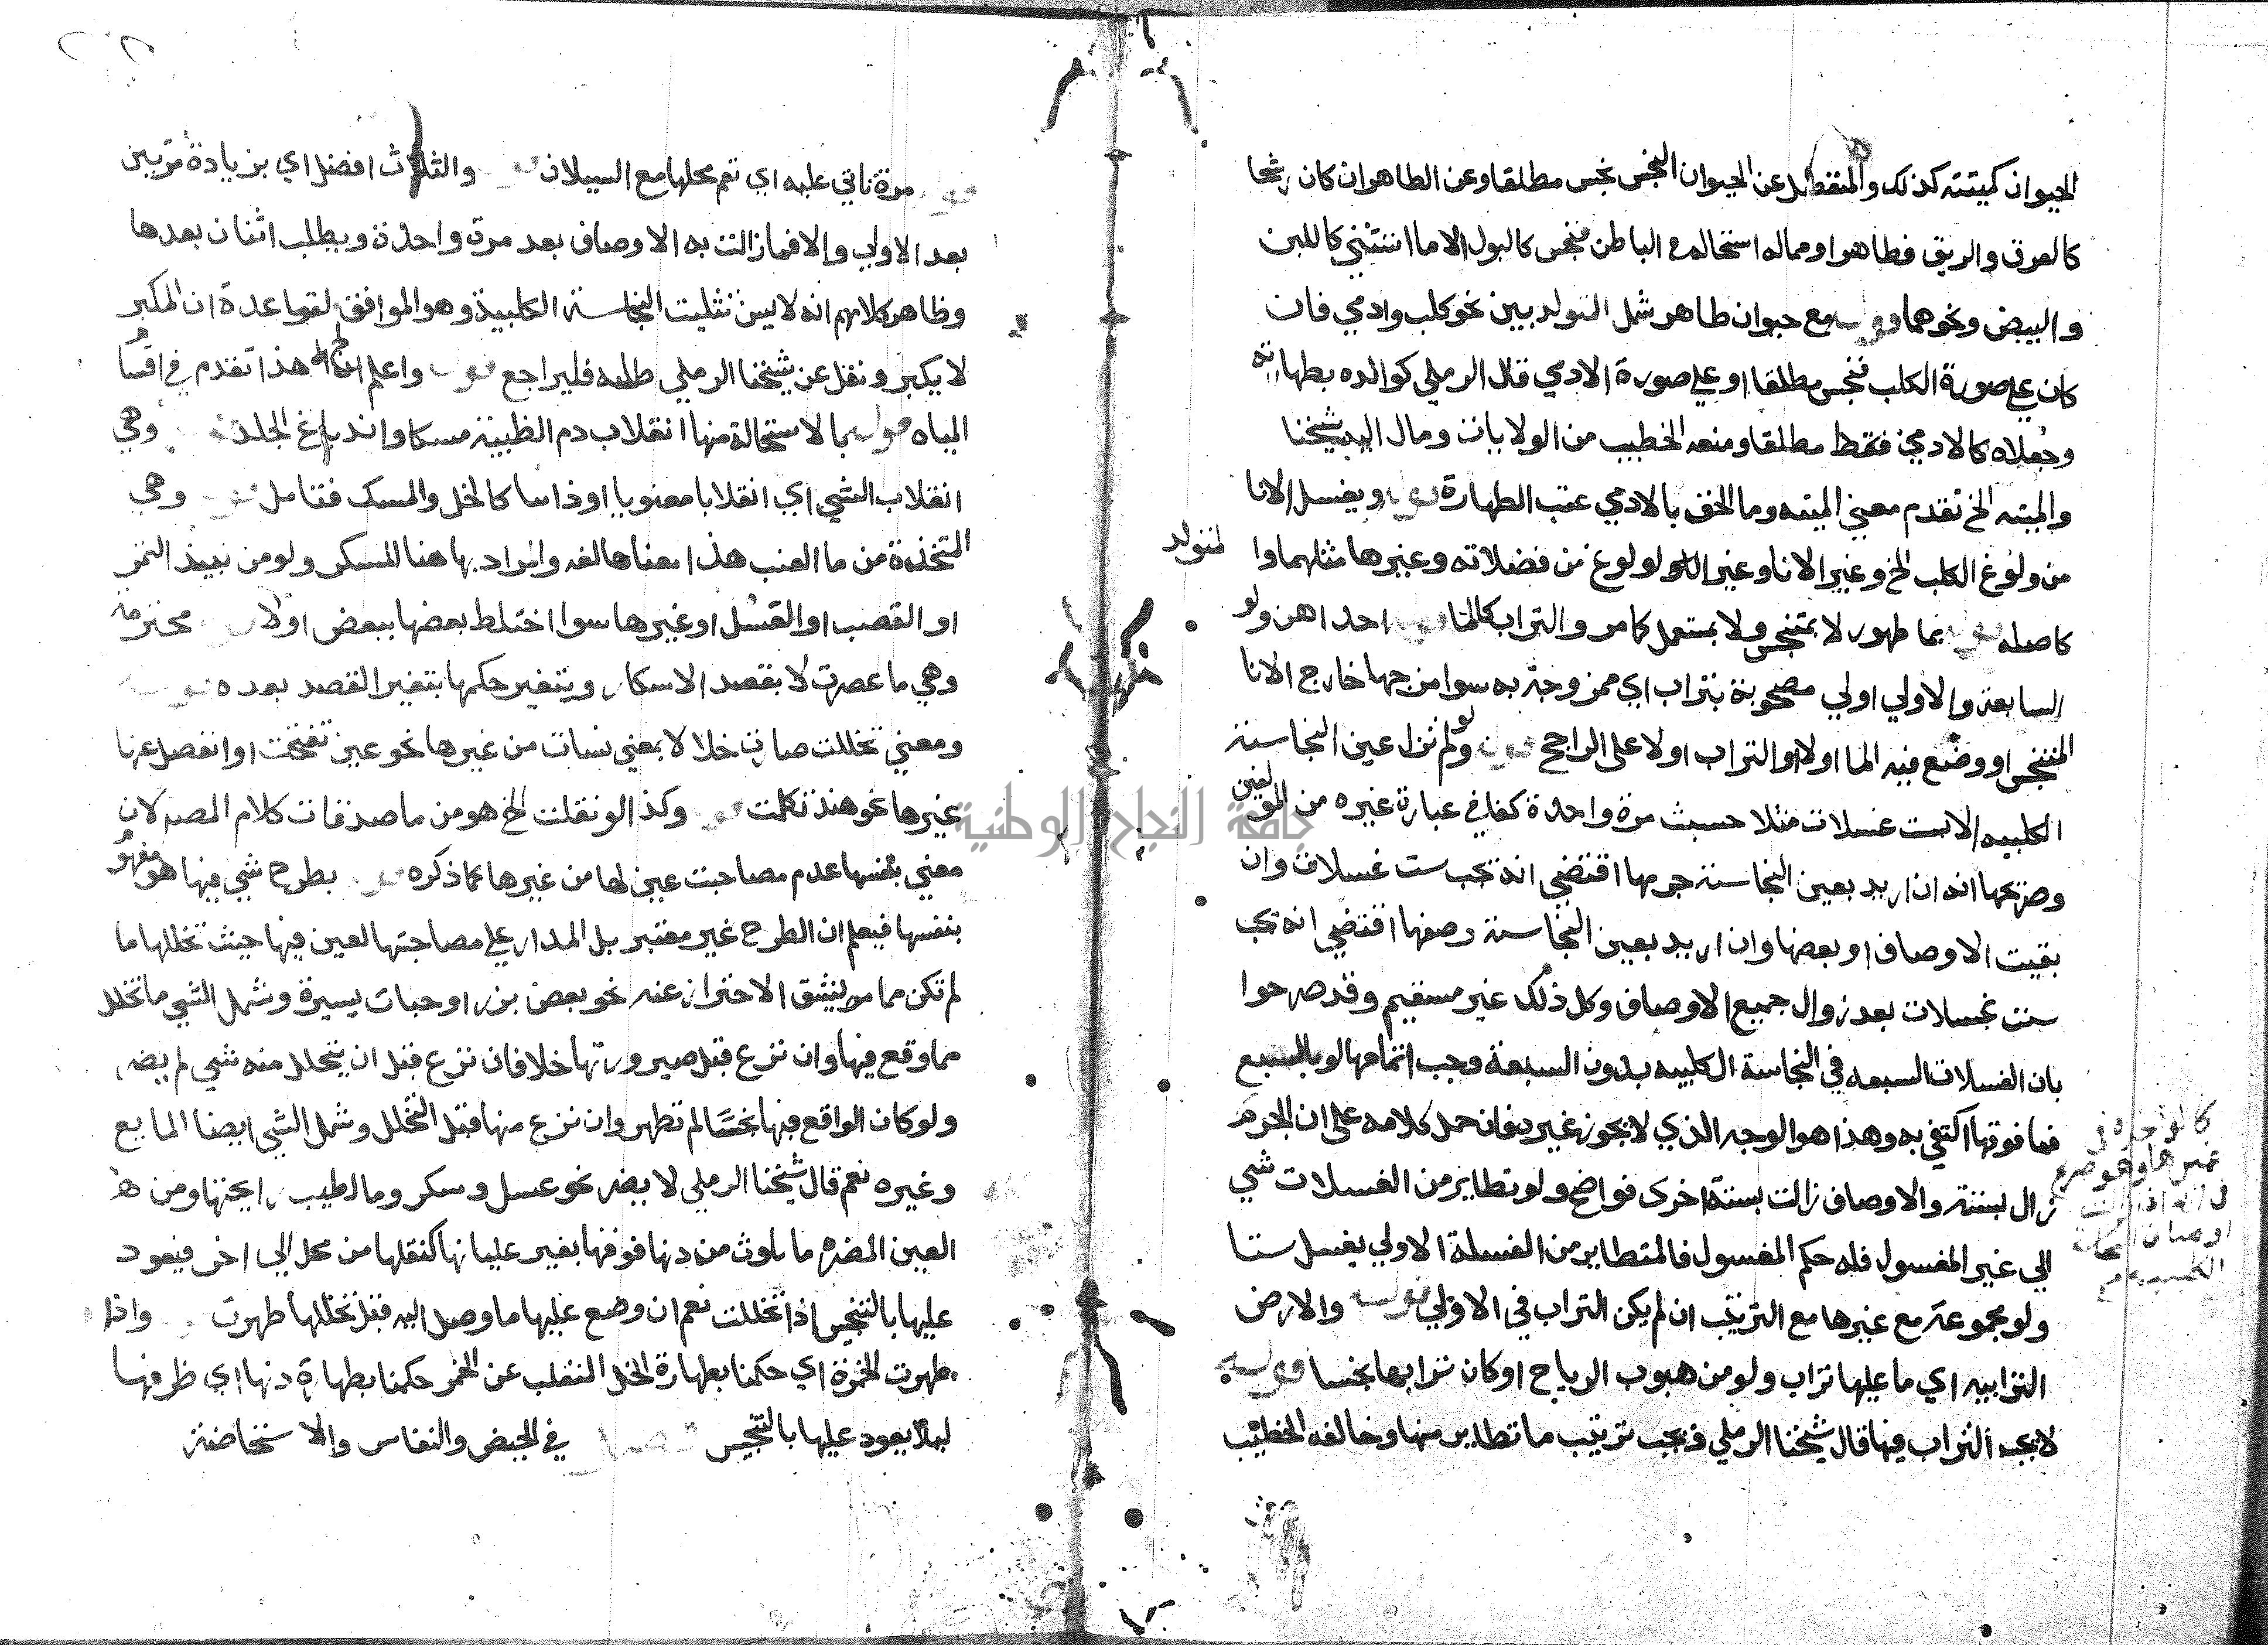 الحيوان كميتته كذلك والمنفصل عن الحيوان النجس نجس مطلقا وعن الطاهر ان كان رشحا
كالعرق والريق فطاهر او مماله استحاله في الباطن فنجس كالبول الا ما استثني كاللبن
والبيض ونحوهما قوله مع حيوان طاهر شمل المتولد بين نحو كلب وادمي فان
كان على صورة الكلب فنجس مطلقا او على صورة الادمي قال الرملي كوالده بطهارته
وجعلاه كالادمي فقط مطلقا ومنعه الخطيب من الولايات ومال اليه شيخنا
والميته الخ تقدم معني الميته وما الحق بالادمي عقب الطهارة قوله ويغسل الانا
من ولوغ الكلب الخ وغير الانا وغير الولوغ من فضلاته وغيرها مثلهما وا
لمتولد
كاصله قوله بما طهور لا بمتنجس ولا بمستعمل كما مر والتراب كالما قوله احداهن ولو
السابعة والاولي اولي مصحوبة بتراب اي ممزوجة به سوا مزجها خارج الانا
المتنجس او وضع فيه الما اولا او التراب اولا على الراجح قوله ولو لم تزل عين النجاسة
الكلبيه الا بست غسلات مثلا حسبت مرة واحدة كفا في عبارة غيره من المولفين
وصريحها انه ان اريد بعين النجاسة جرمها اقتضي انه تجب ست غسلات وان
بقيت الاوصاف او بعضها وان اريد بعين النجاسة وصفها اقتضي انه تجب
ست غسلات بعد زوال جميع الاوصاف وكل ذلك غير مستقيم وقد صرحوا
بان الغسلات السبعه في النجاسة الكلبيه بدون السبعة وجب اتمامها او بالسبع
فما فوقها اكتفي به وهذا هو الوجه الذي لا يجوز غيره فان حمل كلامه على ان الجرم
زال بستة والاوصاف زالت بستة اخرى فواضح ولو تطاير من الغسلات شي
الي غير المغسول فله حكم المغسول فالمتطاير من الغسلة الاولي يغسل ستا
ولو مجموعة مع غيرها مع التتريب ان لم يكن التراب في الاولي قوله والارض
الترابيه اي ما عليها تراب ولو من هبوب الرياح او كان ترابها نجسا قوله
لا يجب التراب فيها قال شيخنا الرملي فيجب تتريب ما تطاير منها وخالفه الخطيب
اوصاف النجاسة
الكلبيه
قوله مرة تاتي عليه اي تعم محلها مع السيلان قوله والثلاث افضل اي بزيادة مرتين
بعد الاولي والا فما زالت به الاوصاف بعد مرة واحدة ويطلب اثنان بعدها
وظاهر كلامهم انه لا يسن تثليث النجاسة الكلبية وهو الموافق لقاعدة ان المكبر
لا يكبر ونقل عن شيخنا الرملي طلبه فليراجع قوله واعلم الخ هذا تقدم في اقسام
المياه قوله بالاستحالة منها انقلاب دم الظبية مسكا واندباغ الجلد قوله وهي
انقلاب الشي اي انقلابا معنويا او ذاتيا كالخل والمسك فتامل قوله وهي
المتخذة من ما العنب هذا معناها لغه والمراد بها هنا المسكر ولو من نبيذ التمر
او القصب او العسل او غيرها سوا اختلط بعضها ببعض او لا قوله محترمة
وهي ما عصرت لا بقصد الاسكار ويتغير حكمها بتغير القصد بعده قوله
ومعني تخللت صارت خلا لا بمعني نسات من غيرها نحو عين تفتتت او انفصل عنها
غيرها نحو هند تكلمت قوله وكذا لو نقلت الخ هو من ماصدقات كلام المصه لان
معني بنفسها عدم مصاحبت عين لها من غيرها كما ذكره قوله بطرح شي فيها هو مفهوم
بنفسها فيعلم ان الطرح غير معتبر بل المدار على مصاحبتها لعين فيها حيث تخللها ما
لم تكن مما يشق الاحتراز عنه نحو بعض بزر او حبات يسيرة وشمل الشي ما تخلل
مما وقع فيها وان نزع قبل صيرورتها خلا فان نزع قبل ان يتحلل منه شي لم يضر
ولو كان الواقع فيها نجسا لم تطهر وان نزع منها قبل التخلل وشمل الشي ايضا المايع
وغيره نعم قال شيخنا الرملي لا يضر نحو عسل وسكر وما لطيب رايحتها ومن هذا
العين المضره ما تلوث من دنها فوقها بغير غليانها كنقلها من محل الي اخر فيعود
عليها بالتنجيس اذا تخللت نعم ان وضع عليها ما وصل اليه قبل تخللها طهرت قوله واذا
طهرت الخمرة اي حكمنا بطهارة الخل المنقلب عن الخمر حكمنا بطهارة دنها اي ظرفها
ليلا يعود عليها بالتنجيس فصل في الحيض والنفاس والاستحاضة
جامعة النجاح الوطنية